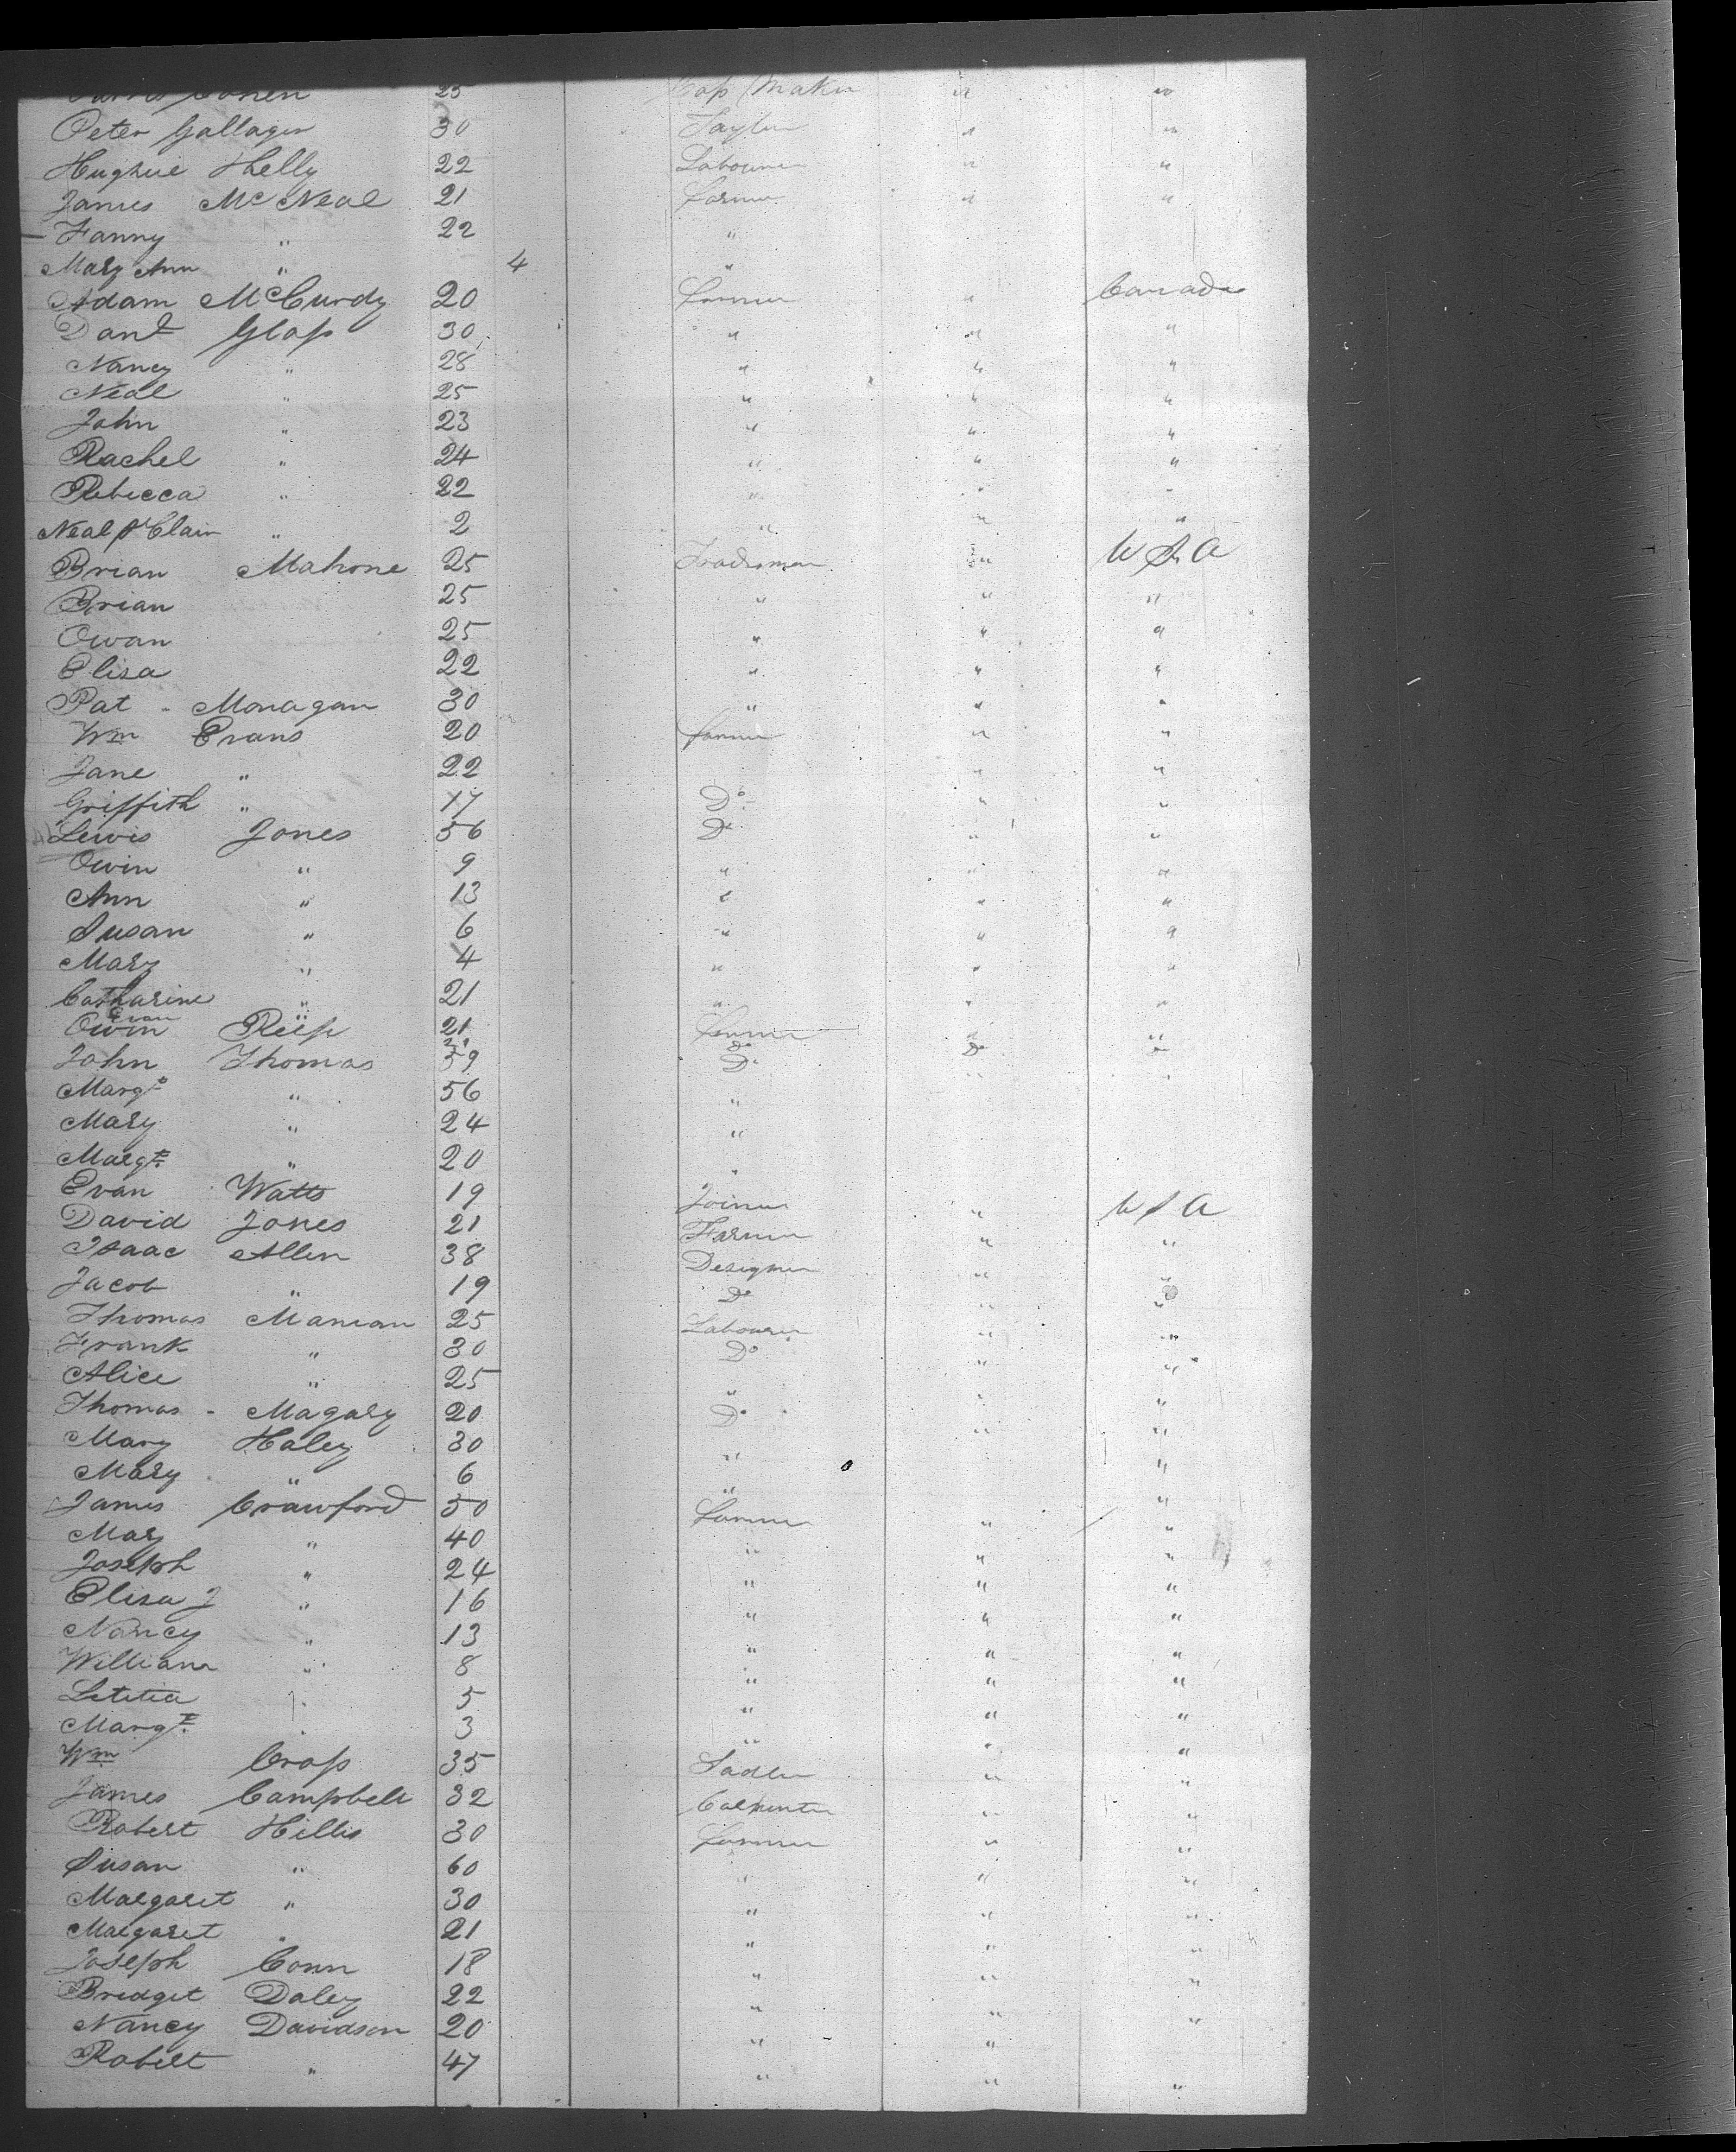 Cohen 25 Cap Maker " "
Peter Gallager 30 Saylor " "
Hughie Helly 22 Labourer " "
James McNeal 21 Farmer " "
Fanny " 22 "
Mary Ann " 4 "
Adam McCurdy 20 Farmer " Canada
Danl Glass 30 " " "
Nancy " 28 " " "
Neal " 25 " " "
John " 23 " " "
Rachel " 24 " " "
Rebecca " 22 " " "
Neal St Clair " 2 " " "
Brian Mahone 25 Tradesman " U S A
Brian 25 " " "
Owan 25 " " "
Elisa 22 " " "
Pat - Monagan 30 " " "
Wm Evans 20 Farmer " "
Jane " 22 " "
Griffith " 17 Do " "
Lewis Jones 56 Do " "
Owin " 9 " " "
Ann " 13 " " "
Susan " 6 " " "
Mary " 4 " " "
Catharine " 21 " " "
Evan 21 Do Do "
Owin Reess 21 Farmer " "
John Thomas 59 Do
Margt " 56 "
Mary " 24 "
Margt " 20 "
Evan Watts 19 Joiner " U S A
David Jones 21 Farmer " "
Isaac Allen 38 Designer " "
Jacob " 19 Do " "
Thomas Manian 25 Labourer " "
Frank " 30 Do " "
Alice " 25 " " "
Thomas - Magary 20 Do " "
Mary Haley 30 " "
Mary " 6 " "
James Crawford 50 Farmer " "
Mary " 40 " " "
Joseph " 24 " " "
Elisa J " 16 " " "
Nancy " 13 " " "
William " 8 " " "
Letitia " 5 " " "
Margt " 3 " " "
Wm Cross 35 Sadler " "
James Campbell 32 Carpenter " "
Robert Hillis 30 Farmer " "
Susan " 60 " " "
Margaret " 30 " " "
Margaret " 21 " " "
Joseph Conn 18 " " "
Bridget Daley 22 " " "
Nancy Davidson 20 " " "
Robert " 47 " " "